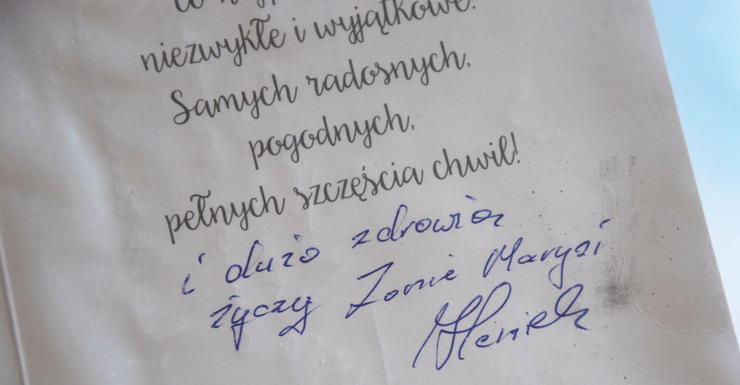 niezwykłe i wyjątkowe.
Samych radosnych,
pogodnych,
pełnych szczęścia chwil!
i dużo zdrowia
życzy Żonie Marysi
Heniek